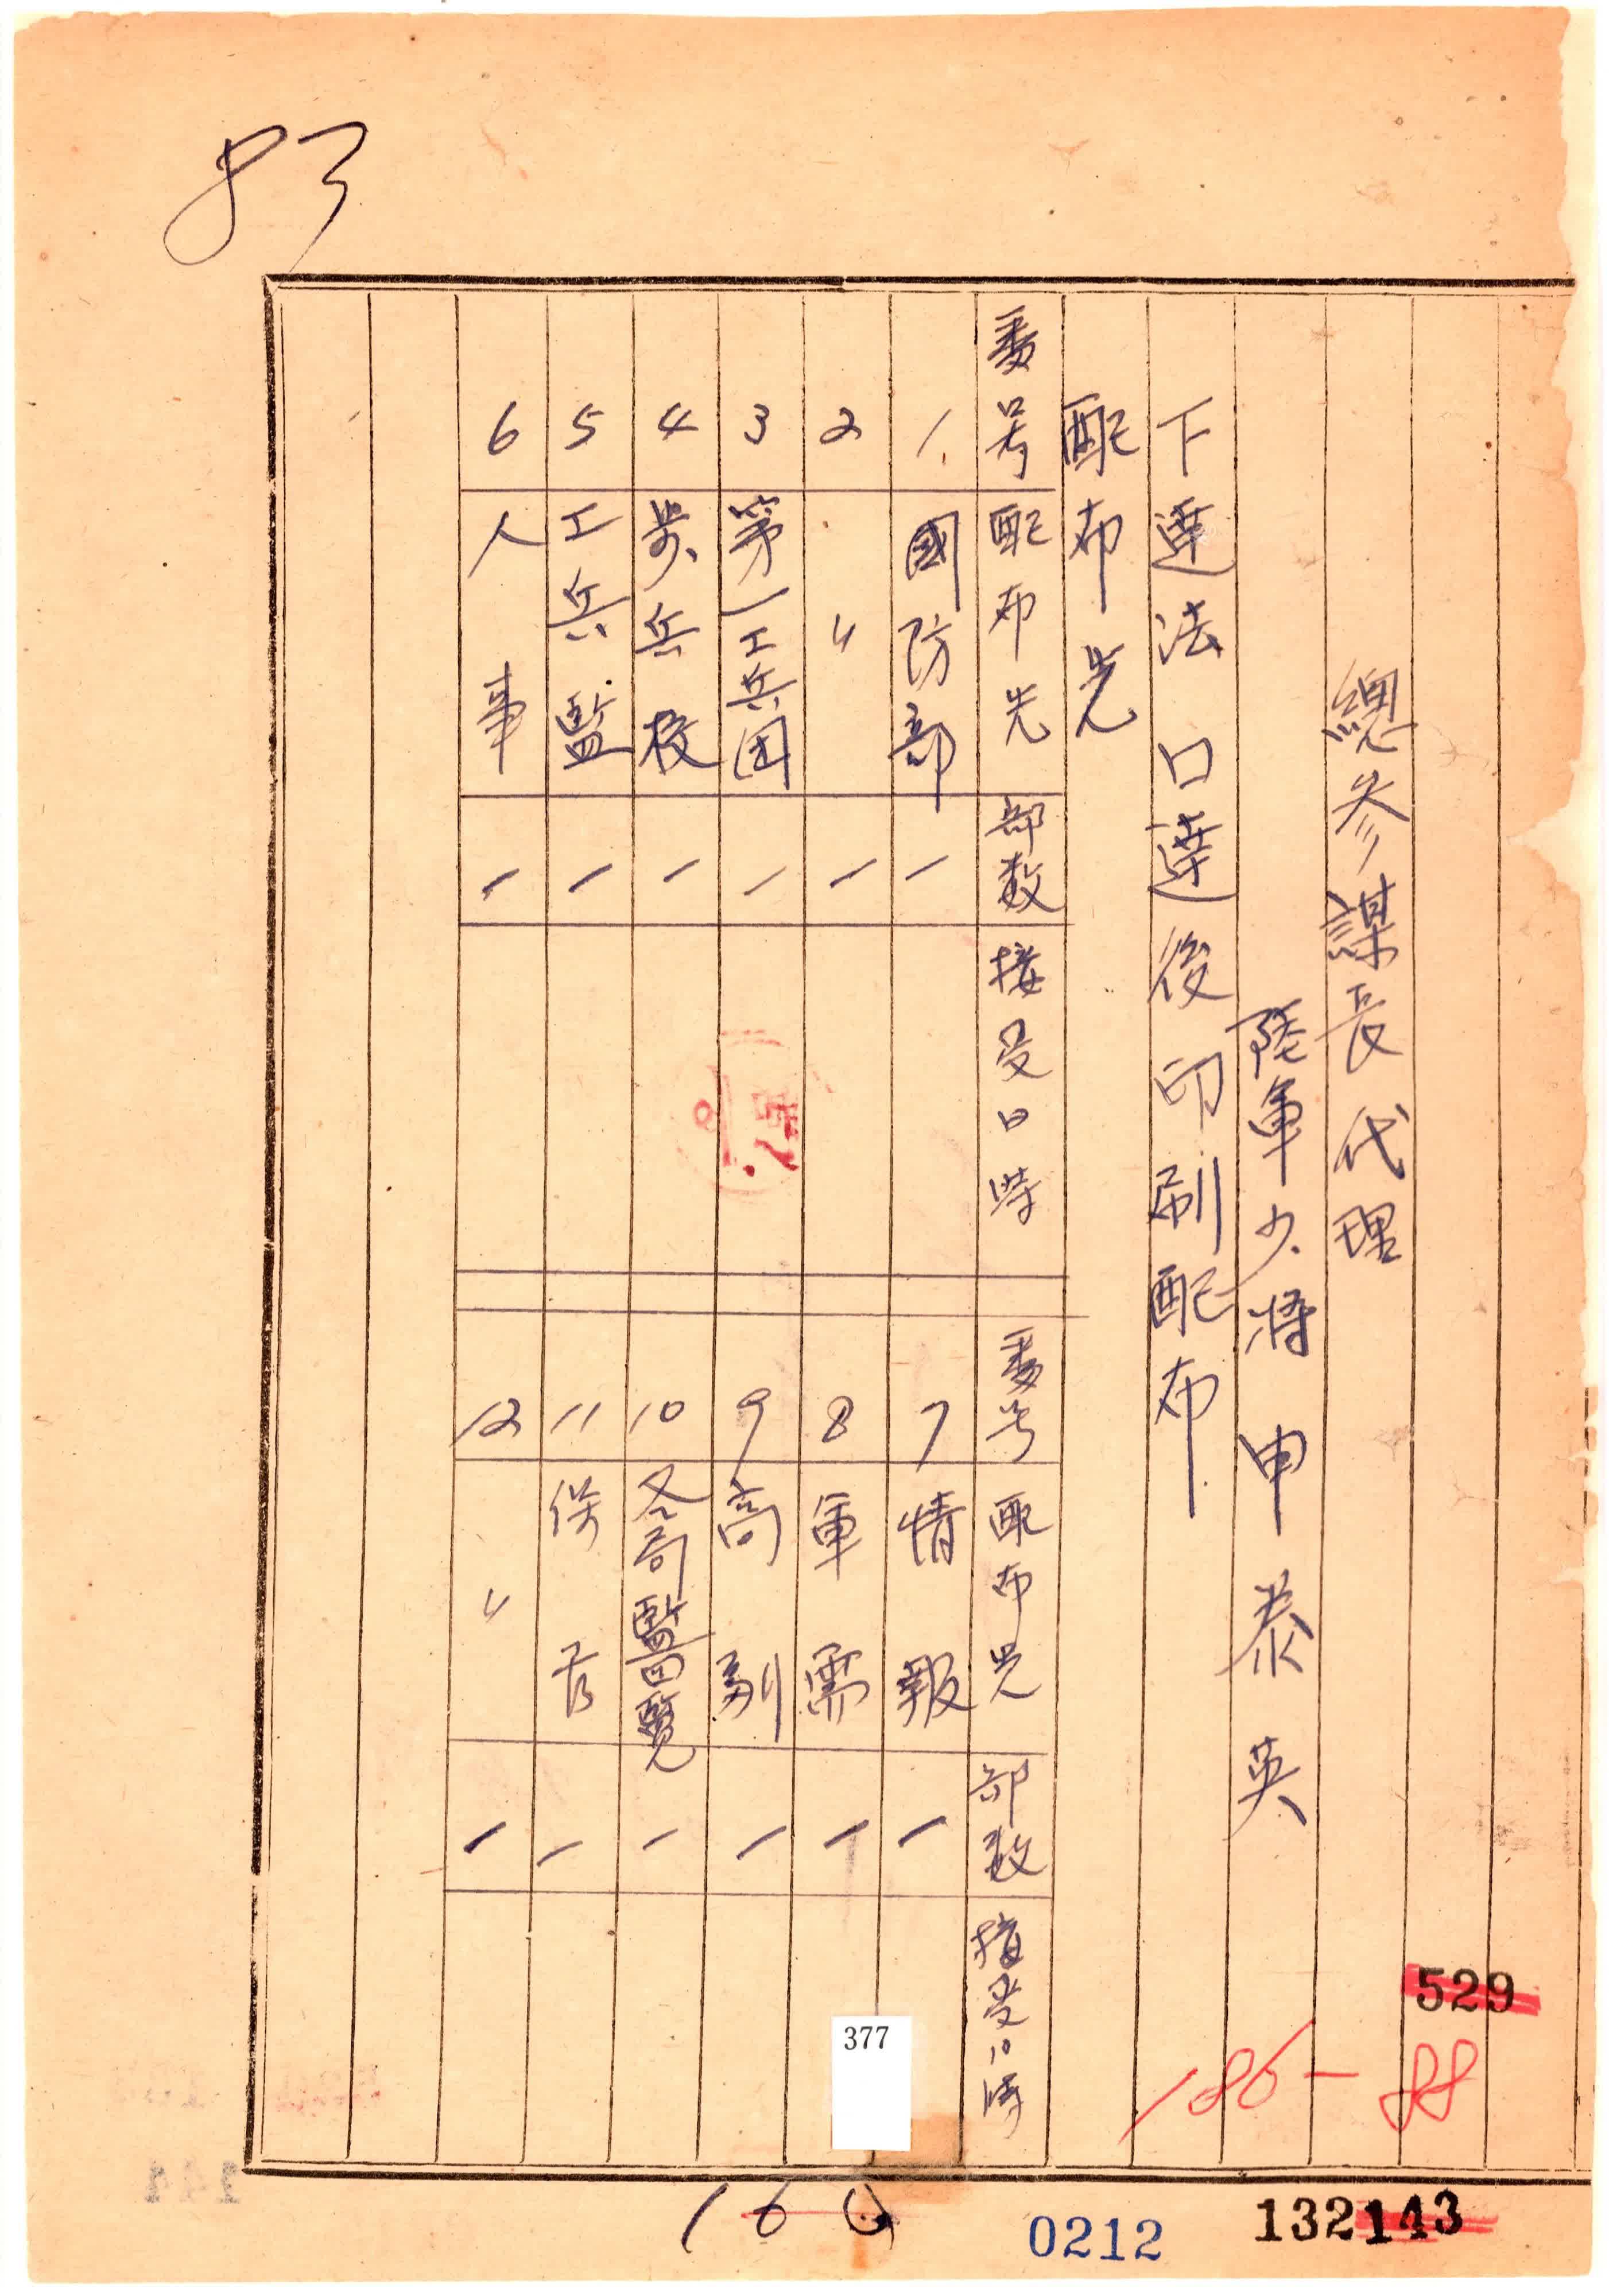 83
總参謀長代理
陸軍少将 申泰英
下達法 口達後印刷配布
配布先
番号 配布先 部数 接受日時 番号 配布先 部数 接受日時
1 國防部 1 7 情報 1
2 〃 1 8 軍需 1
3 第一工兵団 1 9 高副 1
4 歩兵校 1 10 各局監閲覧 1
5 工兵監 1 11 保管 1
6 人事 1 12 〃 1
529
186-88
377
160
0212
132143